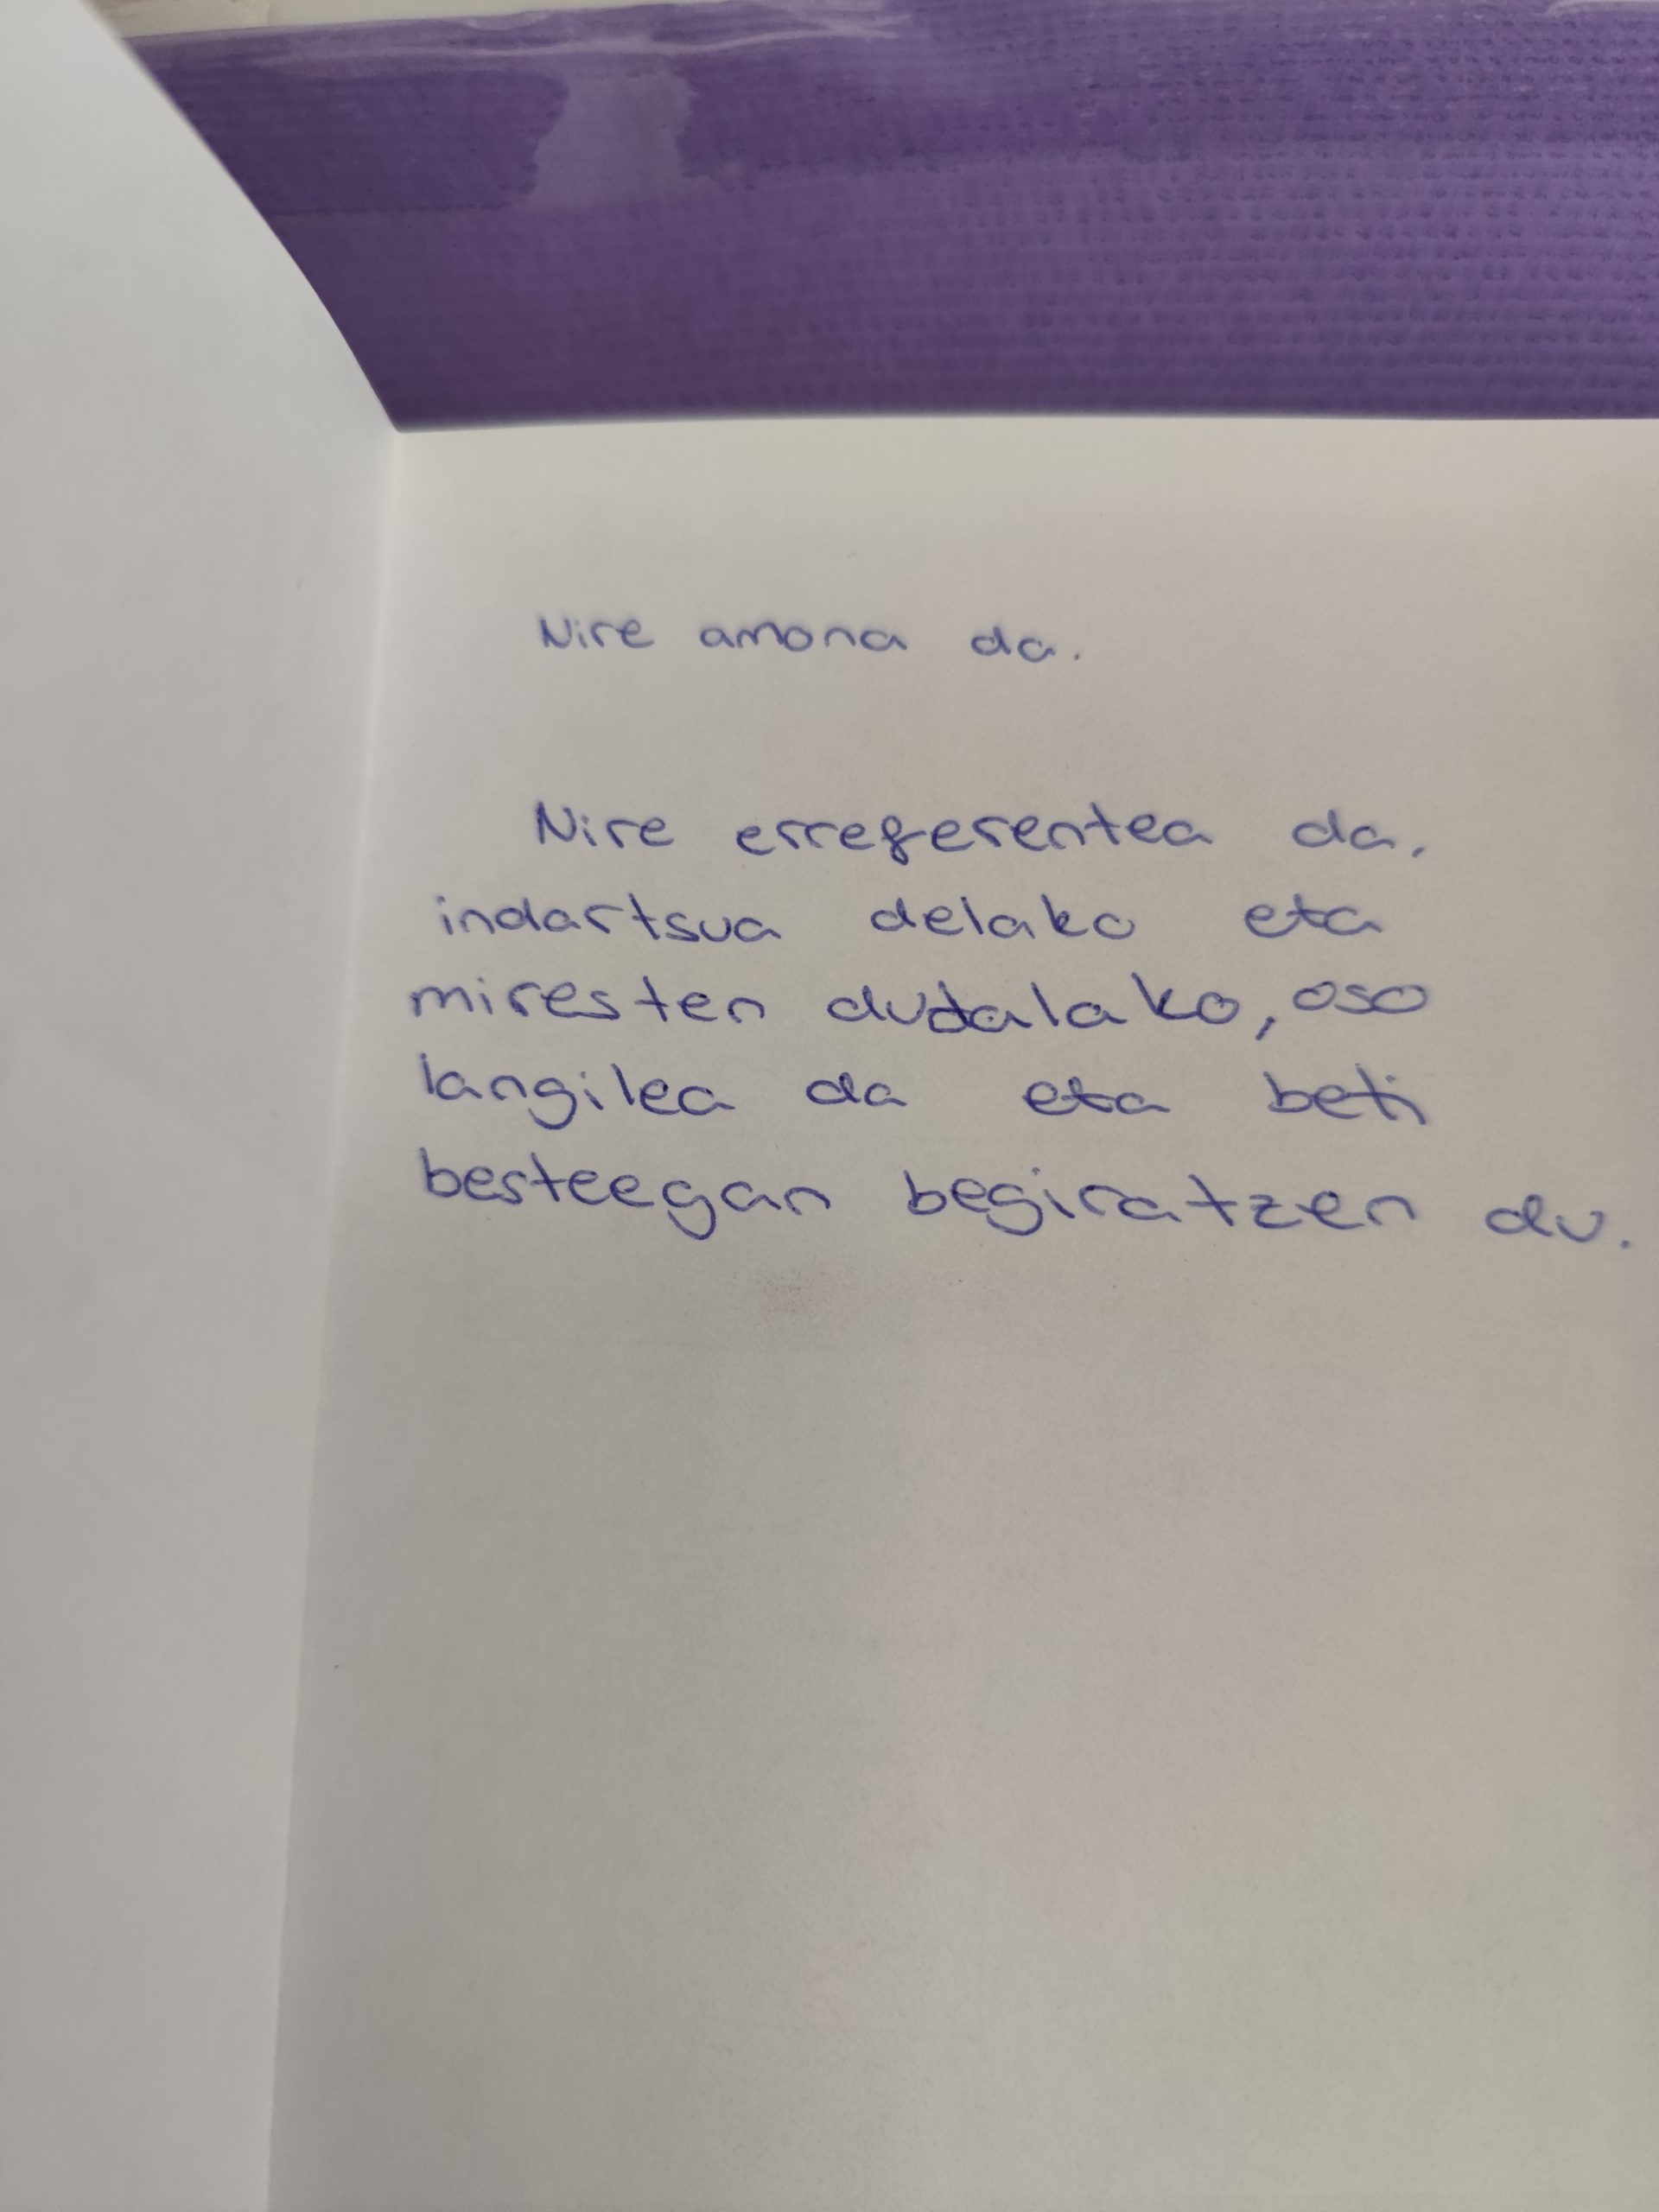 Nire amona da.
Nire erreferentea da,
indartsua delako eta
miresten dudalako, oso
langilea da eta beti
besteegan begiratzen du.